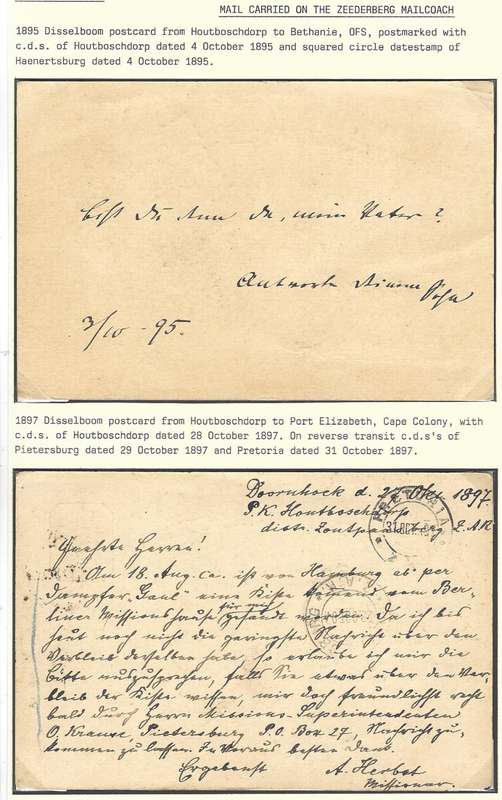 MAIL CARRIED ON THE ZEEDERBERG MAILCOACH
1895 Disselboom postcard from Houtboschdorp to Bethanie, OFS, postmarked with
c.d.s. of Houtboschdorp dated 4 October 1895 and squared circle datestamp of
Haenertsburg dated 4 October 1895.
bist Du denn da, mein Vater?
Antworte Deinem Sohn
3/10 - 95.
1897 Disselboom postcard from Houtboschdorp to Port Elizabeth, Cape Colony, with
c.d.s. of Houtboschdorp dated 28 October 1897. On reverse transit c.d.s's of
Pietersburg dated 29 October 1897 and Pretoria dated 31 October 1897.
Doornhoek d. Okt. 1897.
P.K. Houtboschdorp
distr. Zoutpansberg Z.A.R.
PRETORIA
Geehrte Herren!
Am 18. Aug. ca. ist von Hamburg ab per
Dampfer "Gaul" eine Kiste vom Ber-
liner Missionshause für mich gesandt worden. Da ich bis
heut noch nicht die geringste Nachricht über den
Verbleib derselben habe, so erlaube ich mir die
Bitte auszusprechen, falls Sie etwas über den Ver-
bleib der Kiste wissen, mir doch freundlichst recht
bald durch Herrn Missions-Superintendenten
O. Krause, Pietersburg P.O. Box 27, Nachricht zu-
kommen zu lassen. Im Voraus besten Dank.
Ergebenst A. Herbst
Missionar.